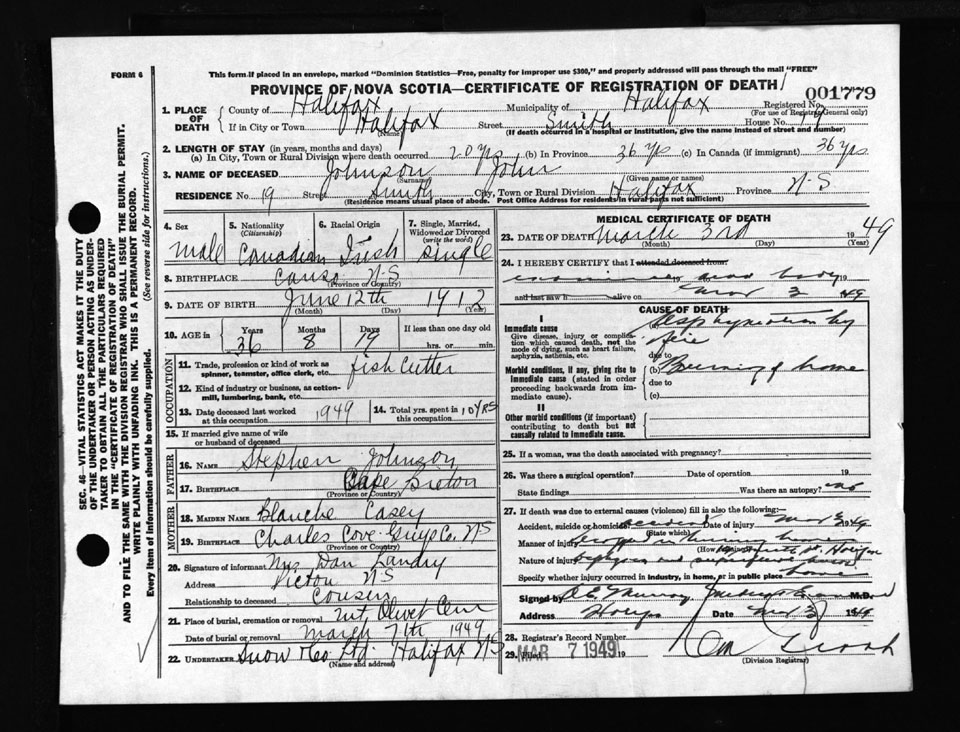 FORM 6
This form if placed in an envelope, marked "Dominion Statistics—Free, penalty for improper use $300," and properly addressed will pass through the mail "FREE"
PROVINCE OF NOVA SCOTIA—CERTIFICATE OF REGISTRATION OF DEATH
001779
1. PLACE OF DEATH
County of Halifax Municipality of Halifax Registered No.
(For use of Registrar General only)
If in City or Town Halifax Street Smith House No. 19
(Name) (If death occurred in a hospital or institution, give the name instead of street and number)
2. LENGTH OF STAY (in years, months and days)
(a) In City, Town or Rural Division where death occurred 20 yrs (b) In Province 36 yrs (c) In Canada (if immigrant) 36 yrs
3. NAME OF DECEASED Johnson John
(Surname) (Given name or names)
RESIDENCE NO 19 Street Smith City, Town or Rural Division Halifax Province N-S
(Residence means usual place of abode. Post Office Address for residences in rural parts not sufficient)
4. Sex
male
5. Nationality
(Citizenship)
Canadian
6. Racial Origin
Irish
7. Single, Married, Widowed or Divorced
(write the word)
Single
8. BIRTHPLACE Canso N-S
(Province or Country)
9. DATE OF BIRTH June 12th 1912
(Month) (Day) (Year)
10. AGE in
Years Months Days If less than one day old
36 8 19 hrs. or min.
OCCUPATION
11. Trade, profession or kind of work as spinner, teamster, office clerk, etc. fish cutter
12. Kind of industry or business, as cotton-mill, lumbering, bank, etc.
13. Date deceased last worked at this occupation 1949
14. Total yrs. spent in this occupation 10 YRS
15. If married give name of wife or husband of deceased
FATHER
16. NAME Stephen Johnson
17. BIRTHPLACE Cape Breton
(Province or Country)
MOTHER
18. MAIDEN NAME Blanche Casey
19. BIRTHPLACE Charles Cove Guys Co. N S
(Province or Country)
20. Signature of informant Mrs Dan Landry
Address N S
Relationship to deceased Cousin
21. Place of burial, cremation or removal Mt. Olivet Cem
Date of burial or removal March 7th 1949
22. UNDERTAKER Snow & Co Ltd. Halifax N S
(Name and address)
MEDICAL CERTIFICATE OF DEATH
23. DATE OF DEATH March 3rd 1949
(Month) (Day) (Year)
24. I HEREBY CERTIFY that I attended deceased from:
body 19
and last saw h alive on 3 49
CAUSE OF DEATH
I
Immediate cause
Give disease, injury or complication which caused death, not the mode of dying, such as heart failure, asphyxia, asthenia, etc.
(a) by fire
due to
Morbid conditions, if any, giving rise to immediate cause (stated in order proceeding backwards from immediate cause).
(b) Burning of home
due to
(c)
II
Other morbid conditions (if important) contributing to death but not causally related to immediate cause.
25. If a woman, was the death associated with pregnancy?
26. Was there a surgical operation? Date of operation 19
State findings Was there an autopsy? no
27. If death was due to external causes (violence) fill in also the following:
Accident, suicide or homicide? accident Date of injury Mar 3 1949
(State which)
Manner of injury burning home
(How sustained)
Nature of injury
Specify whether injury occurred in industry, in home, or in public place home
Signed by Murray M.D.
Address Date 3 1949
28. Registrar's Record Number
29. Filed MAR 7 1949 19
(Division Registrar)
SEC. 46—VITAL STATISTICS ACT MAKES IT THE DUTY
OF THE UNDERTAKER OR PERSON ACTING AS UNDER-
TAKER TO OBTAIN ALL THE PARTICULARS REQUIRED
IN THE "CERTIFICATE OF REGISTRATION OF DEATH"
AND TO FILE THE SAME WITH THE DIVISION REGISTRAR WHO SHALL ISSUE THE BURIAL PERMIT.
WRITE PLAINLY WITH UNFADING INK. THIS IS A PERMANENT RECORD.
Every item of Information should be carefully supplied. (See reverse side for instructions.)